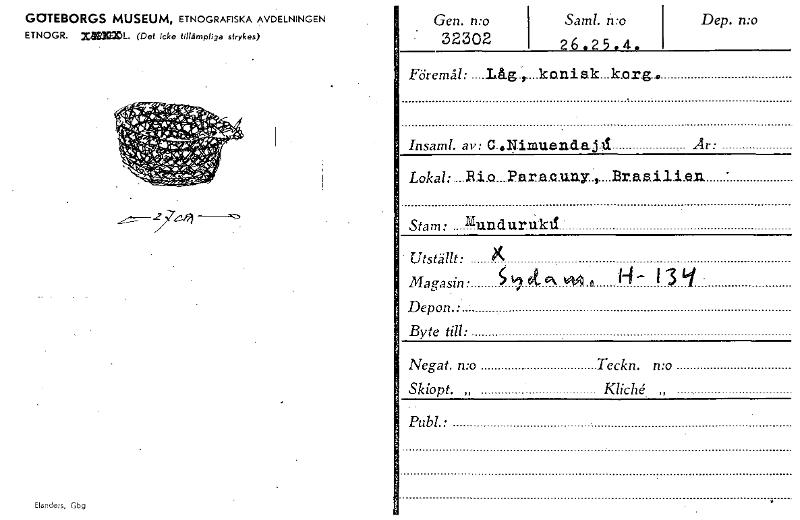 GÖTEBORGS MUSEUM, ETNOGRAFISKA AVDELNINGEN
ETNOGR. L. (Det icke tillämpliga strykes)
27 cm
Elanders, Gbg
Gen. n:o Saml. n:o Dep. n:o
32302 26.25.4.
Föremål: Låg, konisk korg.
Insaml. av: C.Nimuendajú År:
Lokal: Rio Paracuny, Brasilien
Stam: Mundurukú
Utställt: X
Magasin: Sydam. H-134
Depon.:
Byte till:
Negat. n:o Teckn. n:o
Skiopt. „ Kliché „
Publ.: